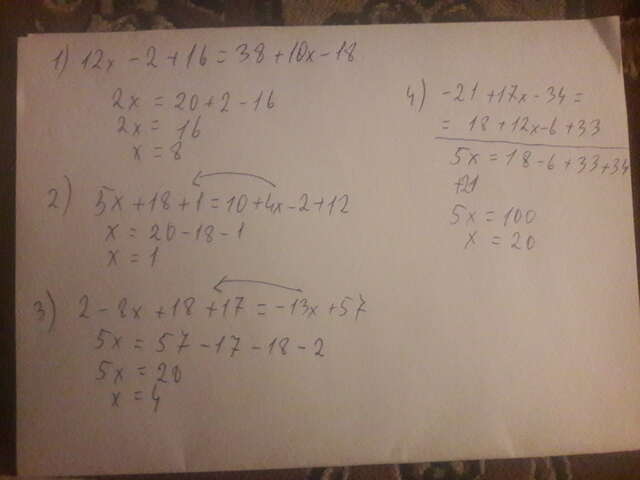 1) 12x - 2 + 16 = 38 + 10x - 18
2x = 20 + 2 - 16
2x = 16
x = 8
2) 5x + 18 + 1 = 10 + 4x - 2 + 12
x = 20 - 18 - 1
x = 1
3) 2 - 8x + 18 + 17 = -13x + 57
5x = 57 - 17 - 18 - 2
5x = 20
x = 4
4) -21 + 17x - 34 =
= 18 + 12x - 6 + 33
5x = 18 - 6 + 33 + 34
+21
5x = 100
x = 20